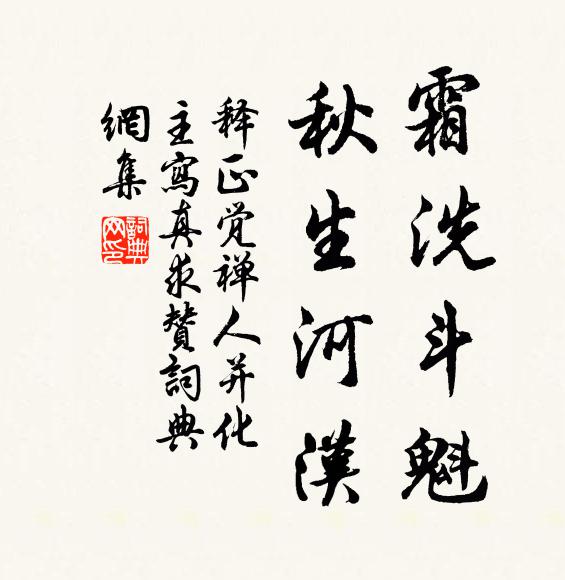 霜洗斗魁
秋生河漢
释正觉禅人并化
主寫真求赞詞典
網集
詞典网印